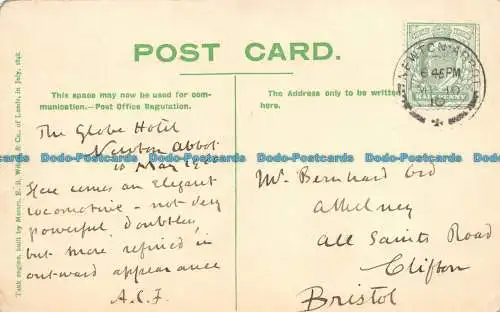 POST CARD.
This space may now be used for com-
munication.—Post Office Regulation.
The Address only to be written
here.
NEWTON ABBOT
6 45 PM
10
The Globe Hotel
Newton Abbot
10 May 1910
Here comes an Elegant
locomotive - not very
powerful, doubtless
but more refined in
outward appearance
A.C.F.
Mr. Bernhard Ord
Athelney
All Saints Road
Clifton
Bristol
Tank engine, built by Messrs. E. B. & Co., of Leeds, in July, 1848.
Dodo-Postcards Dodo-Postcards Dodo-Postcards Dodo-Postcards